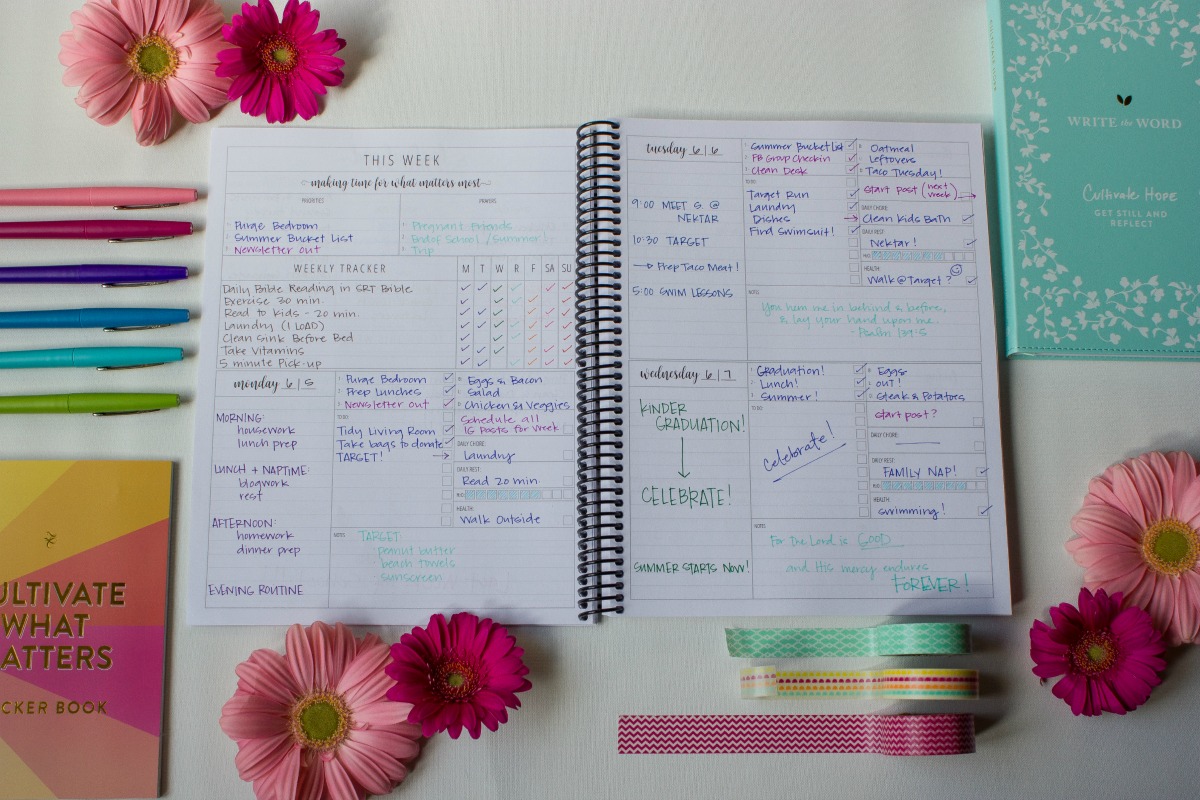 THIS WEEK
making time for what matters most
PRIORITIES
PRAYERS
1 Purge Bedroom
2 Summer Bucket List
3 Newsletter out
Pregnant Friends
End of School / Summer!
Trip
WEEKLY TRACKER M T W R F SA SU
Daily Bible Reading in SRT Bible
Exercise 30 min.
Read to kids - 20 min.
Laundry (1 LOAD)
Clean Sink Before Bed
Take Vitamins
5 minute Pick-up
monday 6|5
MORNING:
housework
lunch prep
LUNCH + NAPTIME:
blogwork
rest
AFTERNOON:
homework
dinner prep
EVENING ROUTINE
1 Purge Bedroom
2 Prep Lunches
3 Newsletter out
TO DO:
Tidy Living Room
Take bags to donate
TARGET!
B Eggs & Bacon
L Salad
D Chicken & Veggies
Schedule all
IG Posts for Week
DAILY CHORE:
Laundry
DAILY REST:
Read 20 min
H2O:
HEALTH:
Walk Outside
NOTES
TARGET:
peanut butter
beach towels
sunscreen
tuesday 6|6
9:00 MEET S. @
NEKTAR
10:30 TARGET
→ Prep Taco Meat!
5:00 SWIM LESSONS
1 Summer Bucket List
2 FB Group Checkin
3 Clean Desk
TO DO:
Target Run
Laundry
Dishes
Find Swimsuit!
B Oatmeal
L Leftovers
D Taco Tuesday!
start post (next
week)
DAILY CHORE:
Clean Kids Bath
DAILY REST:
Nektar!
H2O:
HEALTH:
Walk @ Target?
NOTES
You hem me in behind & before,
& lay your hand upon me.
- Psalm 139:5
wednesday 6|7
KINDER
GRADUATION!
CELEBRATE!
SUMMER STARTS NOW!
1 Graduation!
2 Lunch!
3 Summer!
TO DO:
Celebrate!
B Eggs
L OUT!
D Steak & Potatoes
start post?
DAILY CHORE:
DAILY REST:
FAMILY NAP!
H2O:
HEALTH:
swimming!
NOTES
For the Lord is GOOD
and His mercy endures
FOREVER!
WRITE the WORD
Cultivate Hope
GET STILL AND
REFLECT
ULTIVATE
WHAT
ATTERS
CKER BOOK